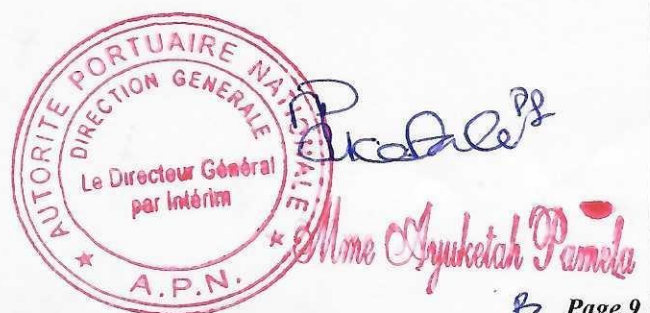 AUTORITE PORTUAIRE NATIONALE
DIRECTION GENERALE
Le Directeur Général
par Intérim
★ A.P.N. ★
Mme Ayuketah Pamela
Page 9